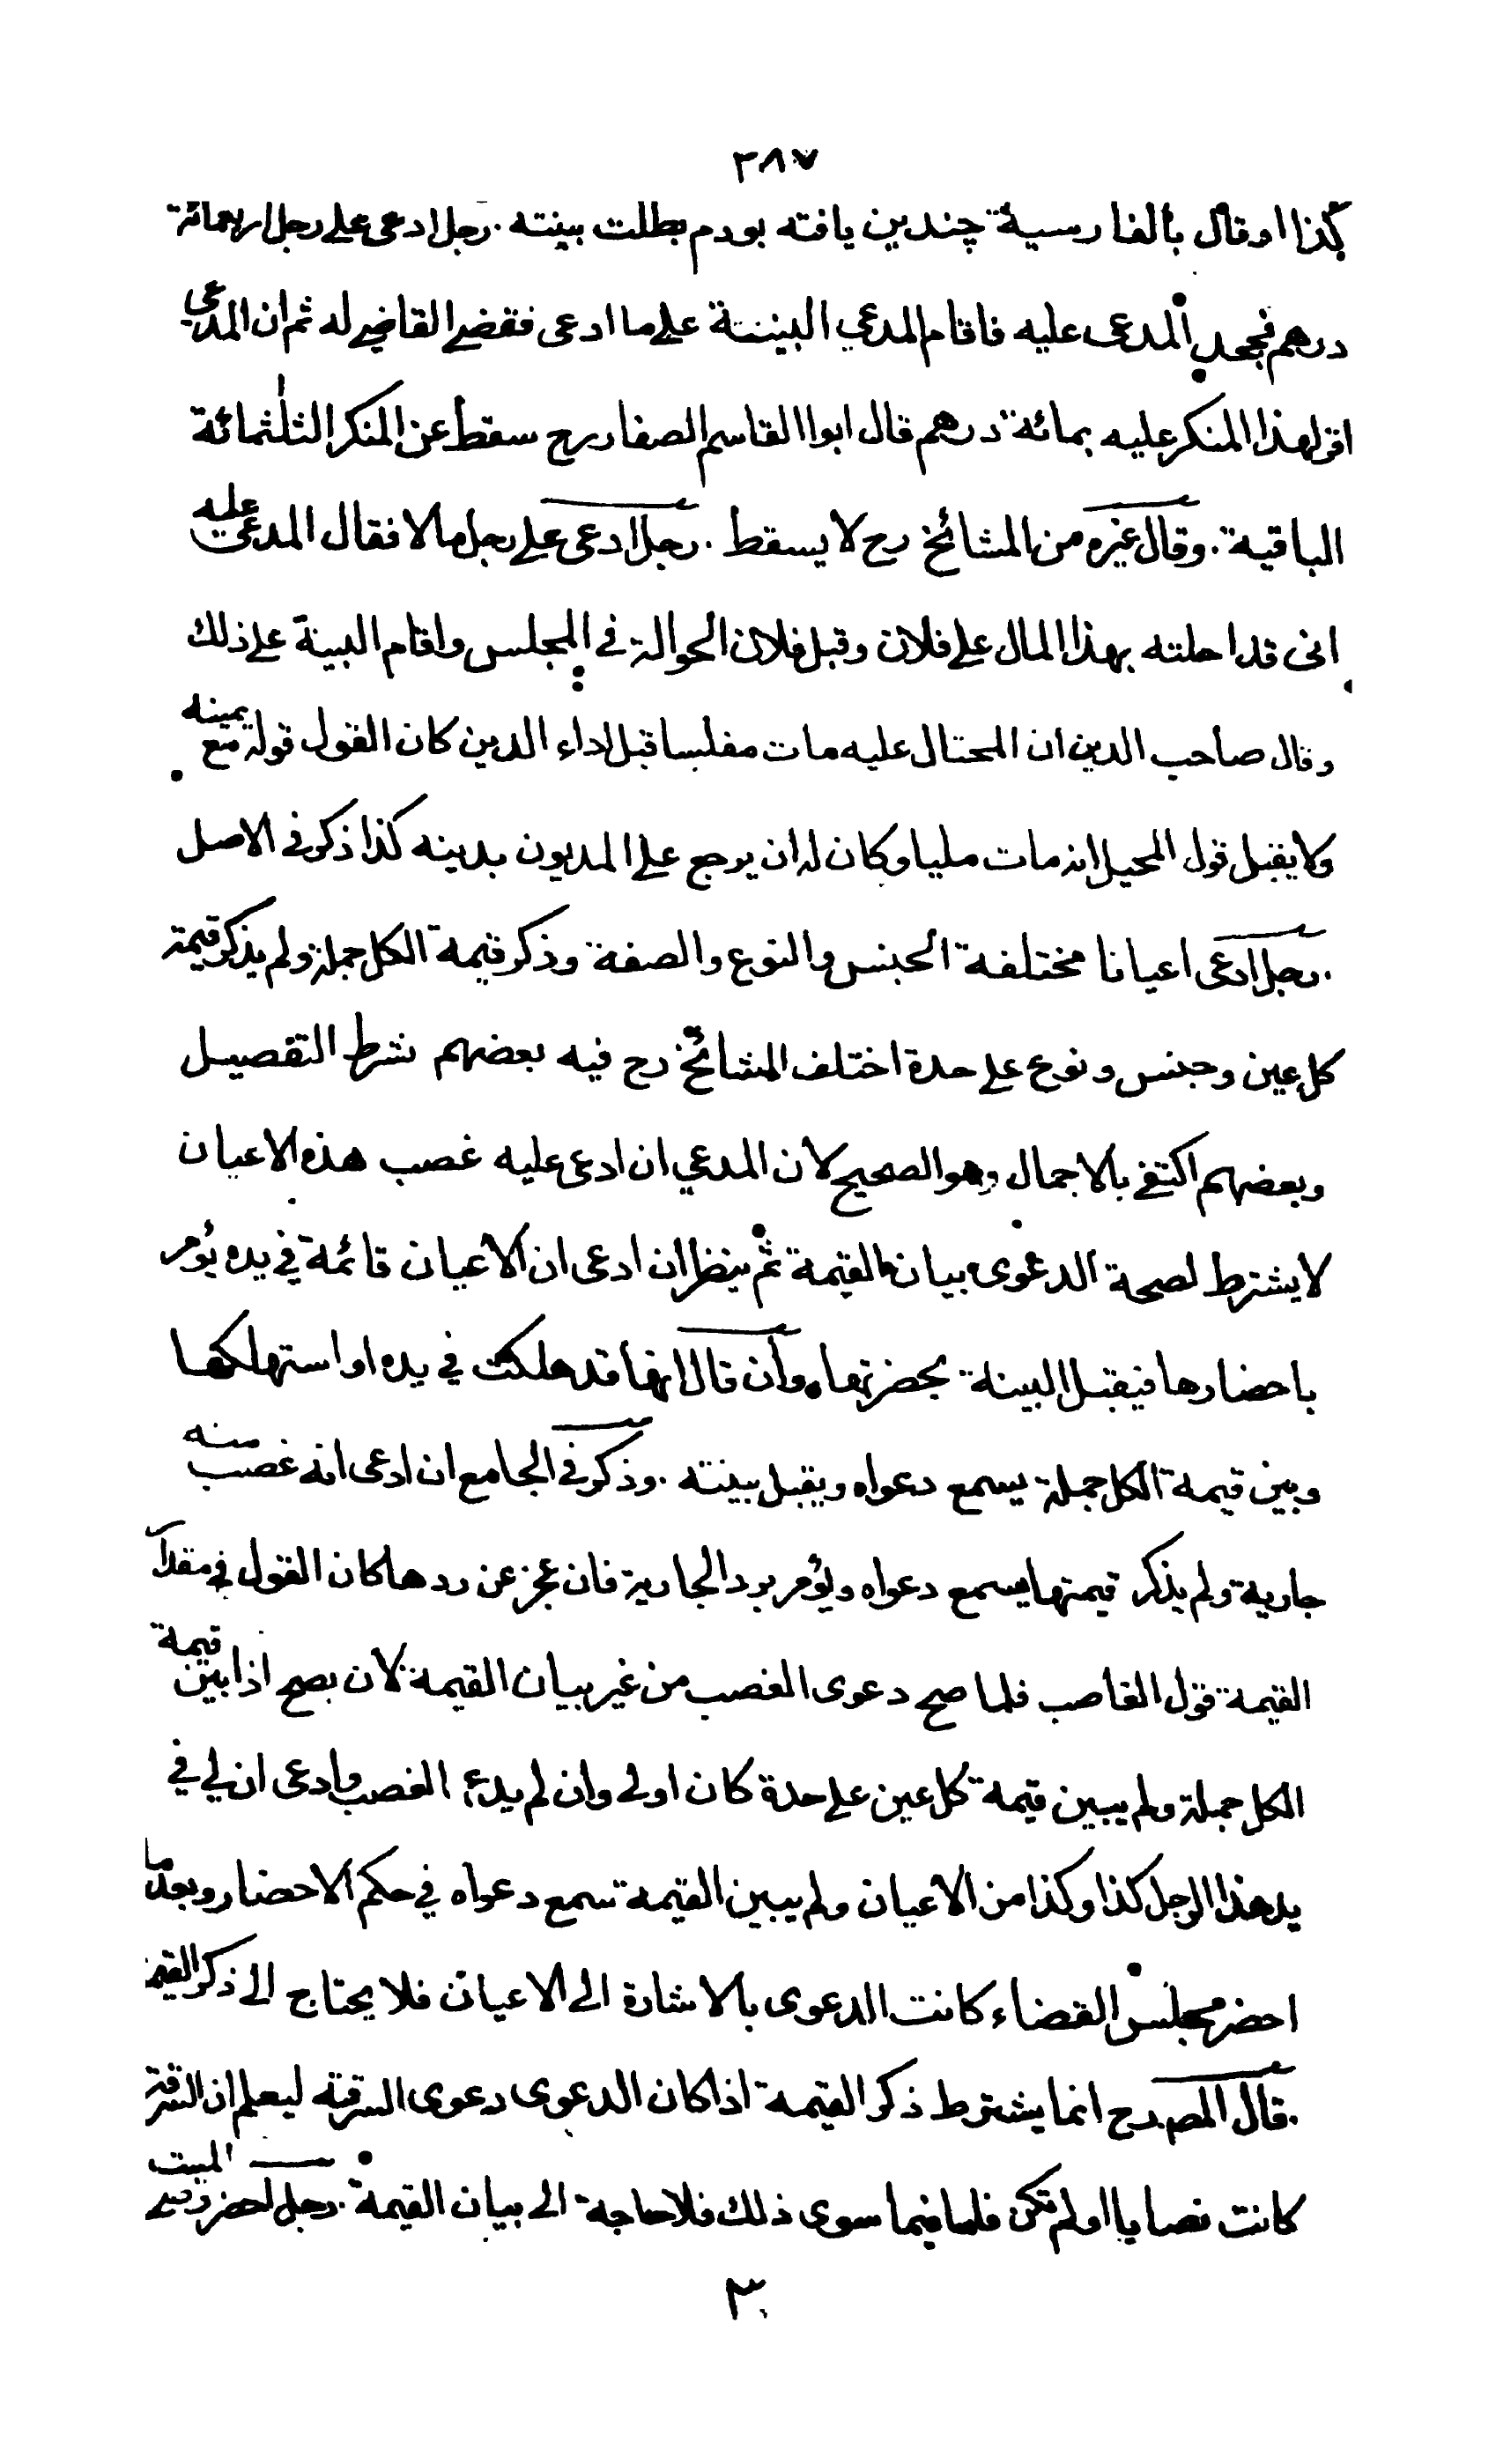 ٣٨٧
كذا او قال بالفارسية چندين يافته بودم بطلت بينته . رجل ادعى على رجل اربعمائة
درهم فجحد المدعى عليه فاقام المدعي البينة على ما ادعى فقضى القاضي له ثم ان المدعي
اقر لهذا المنكر عليه بمائة درهم قال ابوا القاسم الصفار رح سقط عن المنكر الثلثمائة
الباقية . وقال غيره من المشائخ رح لا يسقط . رجل ادعى على رجل مالا فقال المدعى عليه
انى قد احلته بهذا المال على فلان وقبل فلان الحوالة في المجلس واقام البينة على ذلك
وقال صاحب الدين ان المحتال عليه مات مفلسا قبل اداء الدين كان القول قوله مع يمينه
ولا يقبل قول المحيل انه مات مليا وكان له ان يرجع على المديون بدينه كذا ذكر في الاصل
. رجل ادعى اعيانا مختلفة الجنس والنوع والصفة وذكر قيمة الكل جملة ولم يذكر قيمة
كل عين وجنس ونوع على حدة اختلف المشائخ رح فيه بعضهم شرط التفصيل
وبعضهم اكتفى بالاجمال وهو الصحيح لان المدعي ان ادعى عليه غصب هذه الاعيان
لا يشترط لصحة الدعوى بيان القيمة ثم ينظر ان ادعى ان الاعيان قائمة في يده يؤمر
باحضارها فيقبل البينة بحضرتها . وان قال انها قد هلكت في يده او استهلكها
وبين قيمة الكل جملة يسمع دعواه ويقبل بينته . وذكر في الجامع ان ادعى انه غصب منه
جارية ولم يذكر قيمتها يسمع دعواه ويؤمر برد الجارية فان عجز عن ردها كان القول في مقدار
القيمة قول الغاصب فلما صح دعوى الغصب من غير بيان القيمة لان يصح اذا بين قيمة
الكل جملة ولم يبين قيمة كل عين على حدة كان اولى وان لم يدع الغصب وادعى ان لي في
يد هذا الرجل كذا وكذا من الاعيان ولم يبين القيمة تسمع دعواه في حكم الاحضار وبعد ما
احضر مجلس القضاء كانت الدعوى بالاشارة الى الاعيان فلا يحتاج الى ذكر القيمة
. قال المصرح انما يشترط ذكر القيمة اذا كان الدعوى دعوى السرقة ليعلم ان السرقة
كانت نصابا او لم تكن فلما فيما سوى ذلك فلا حاجة الى بيان القيمة . رجل احضر وصي الميت
٣